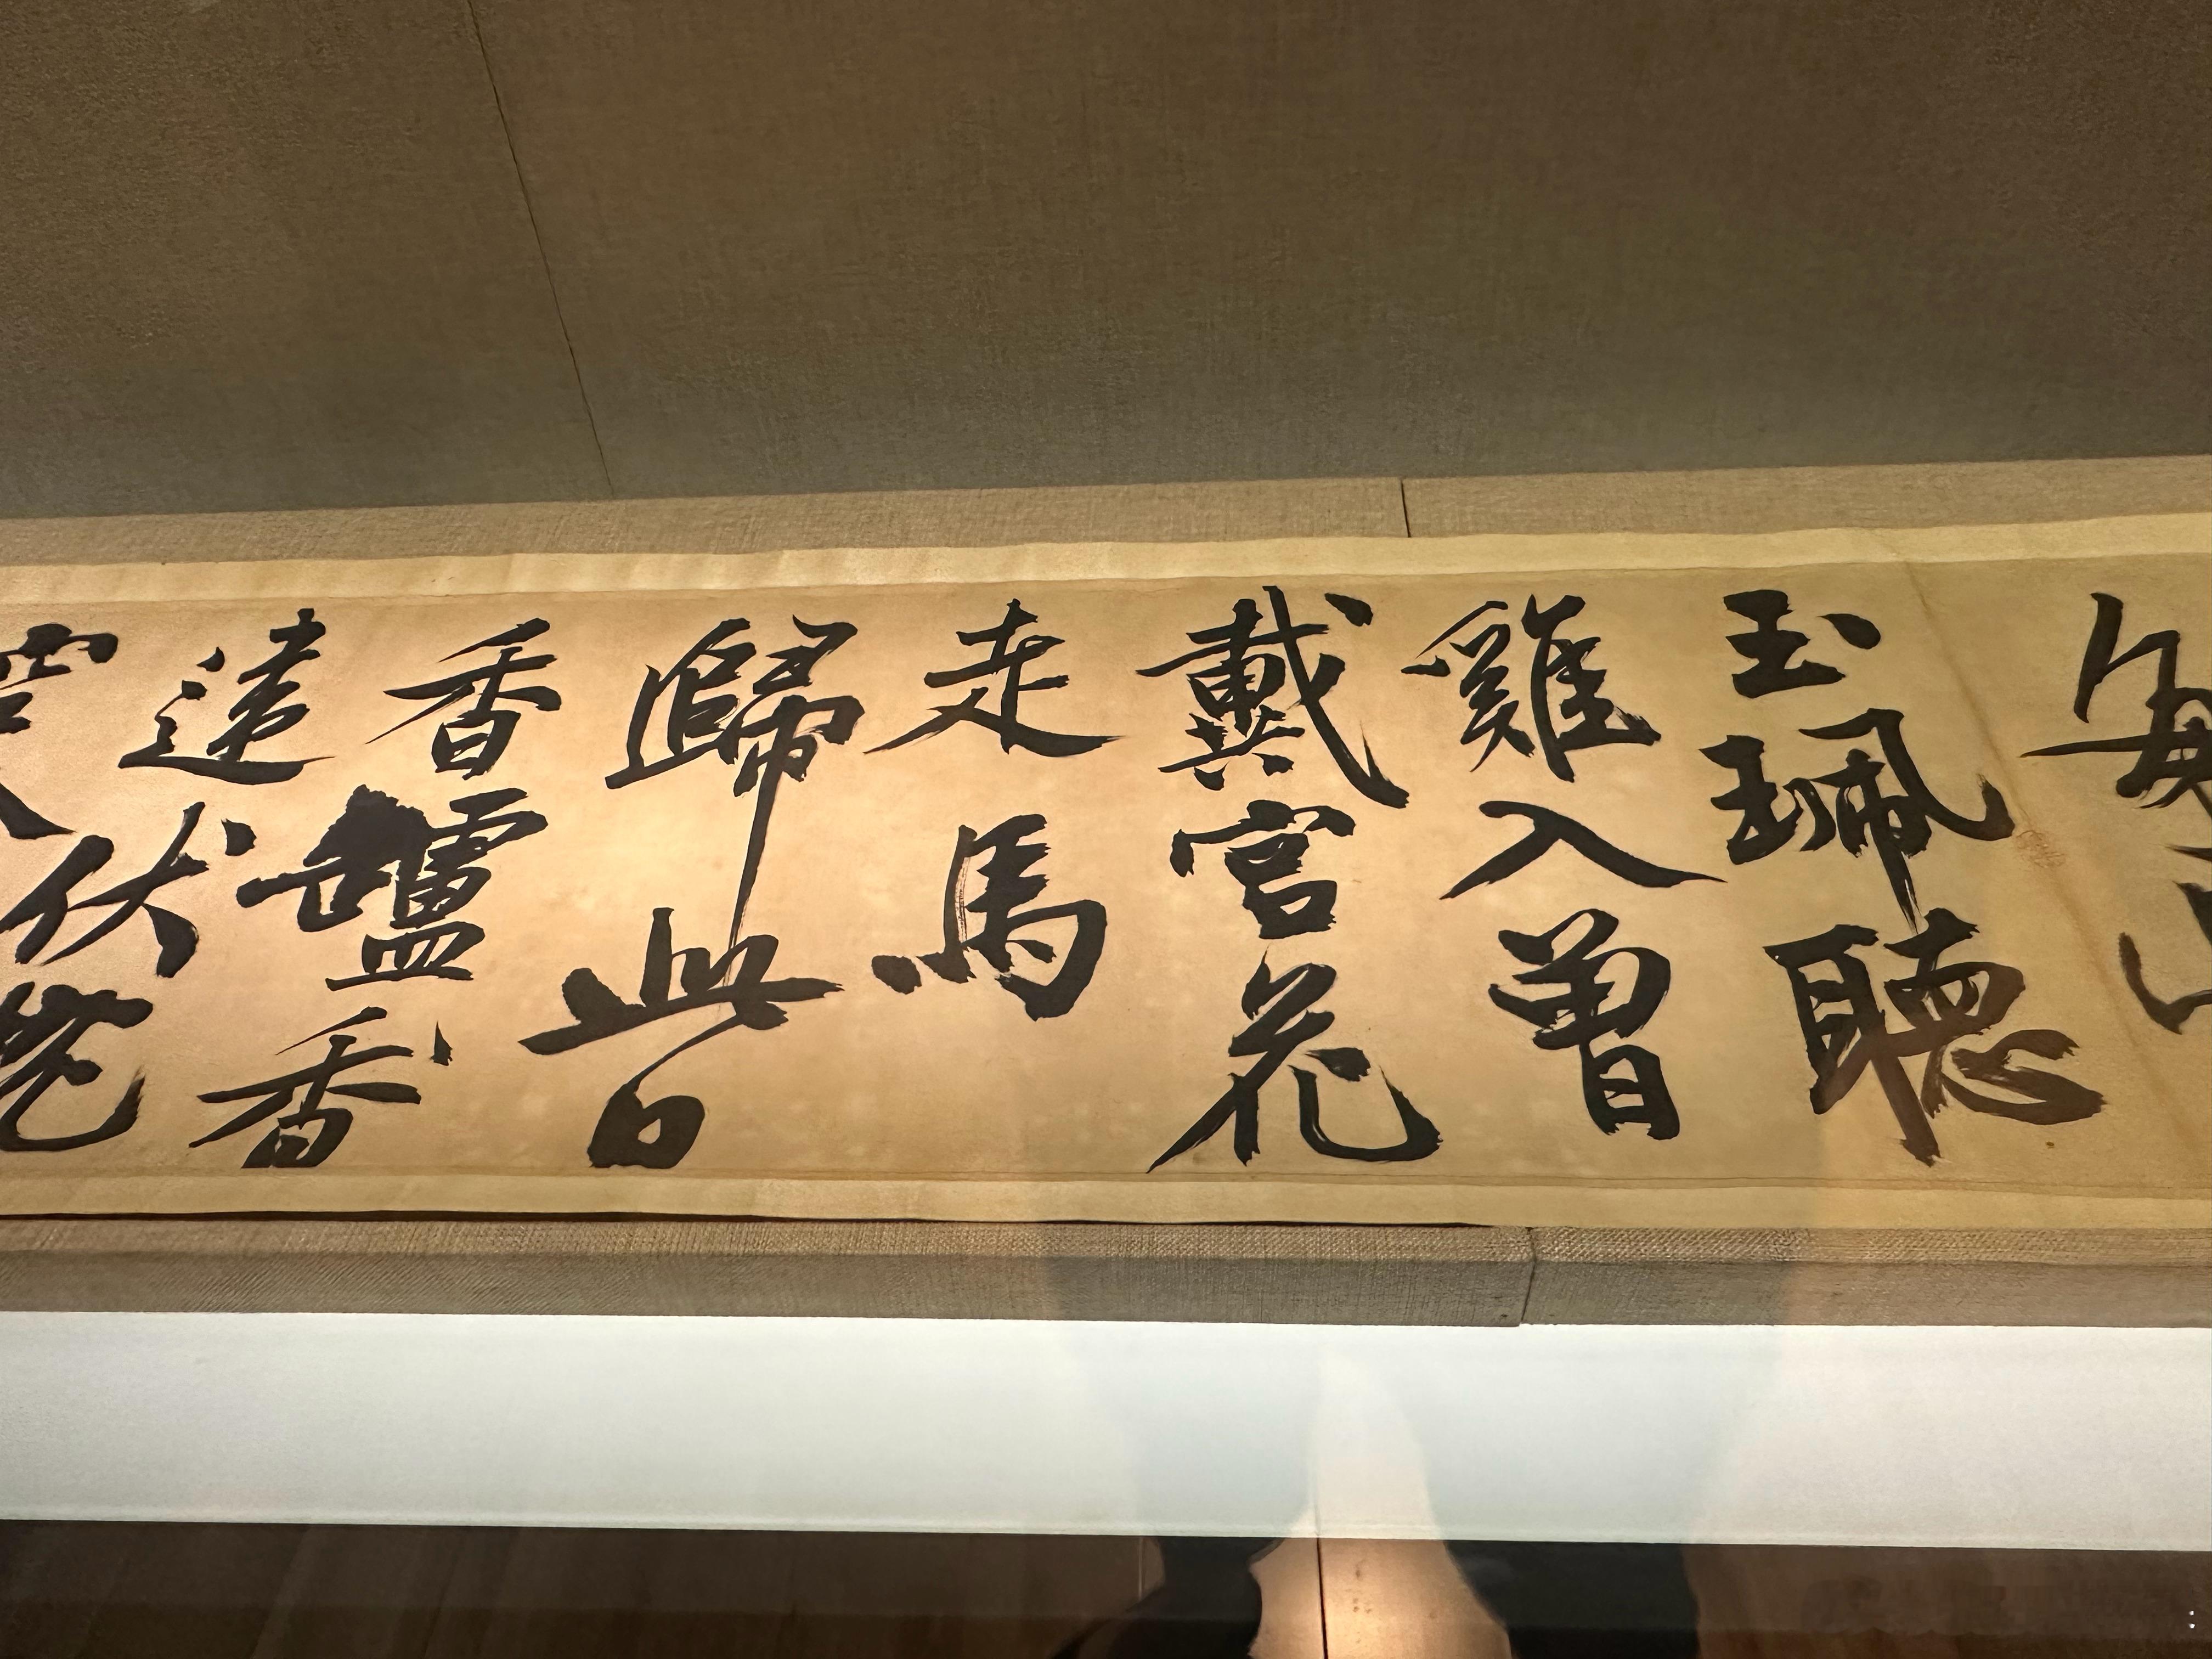 玉珮聽
雞入曾
戴宮花
走馬
歸此日
香罏香
遠伏